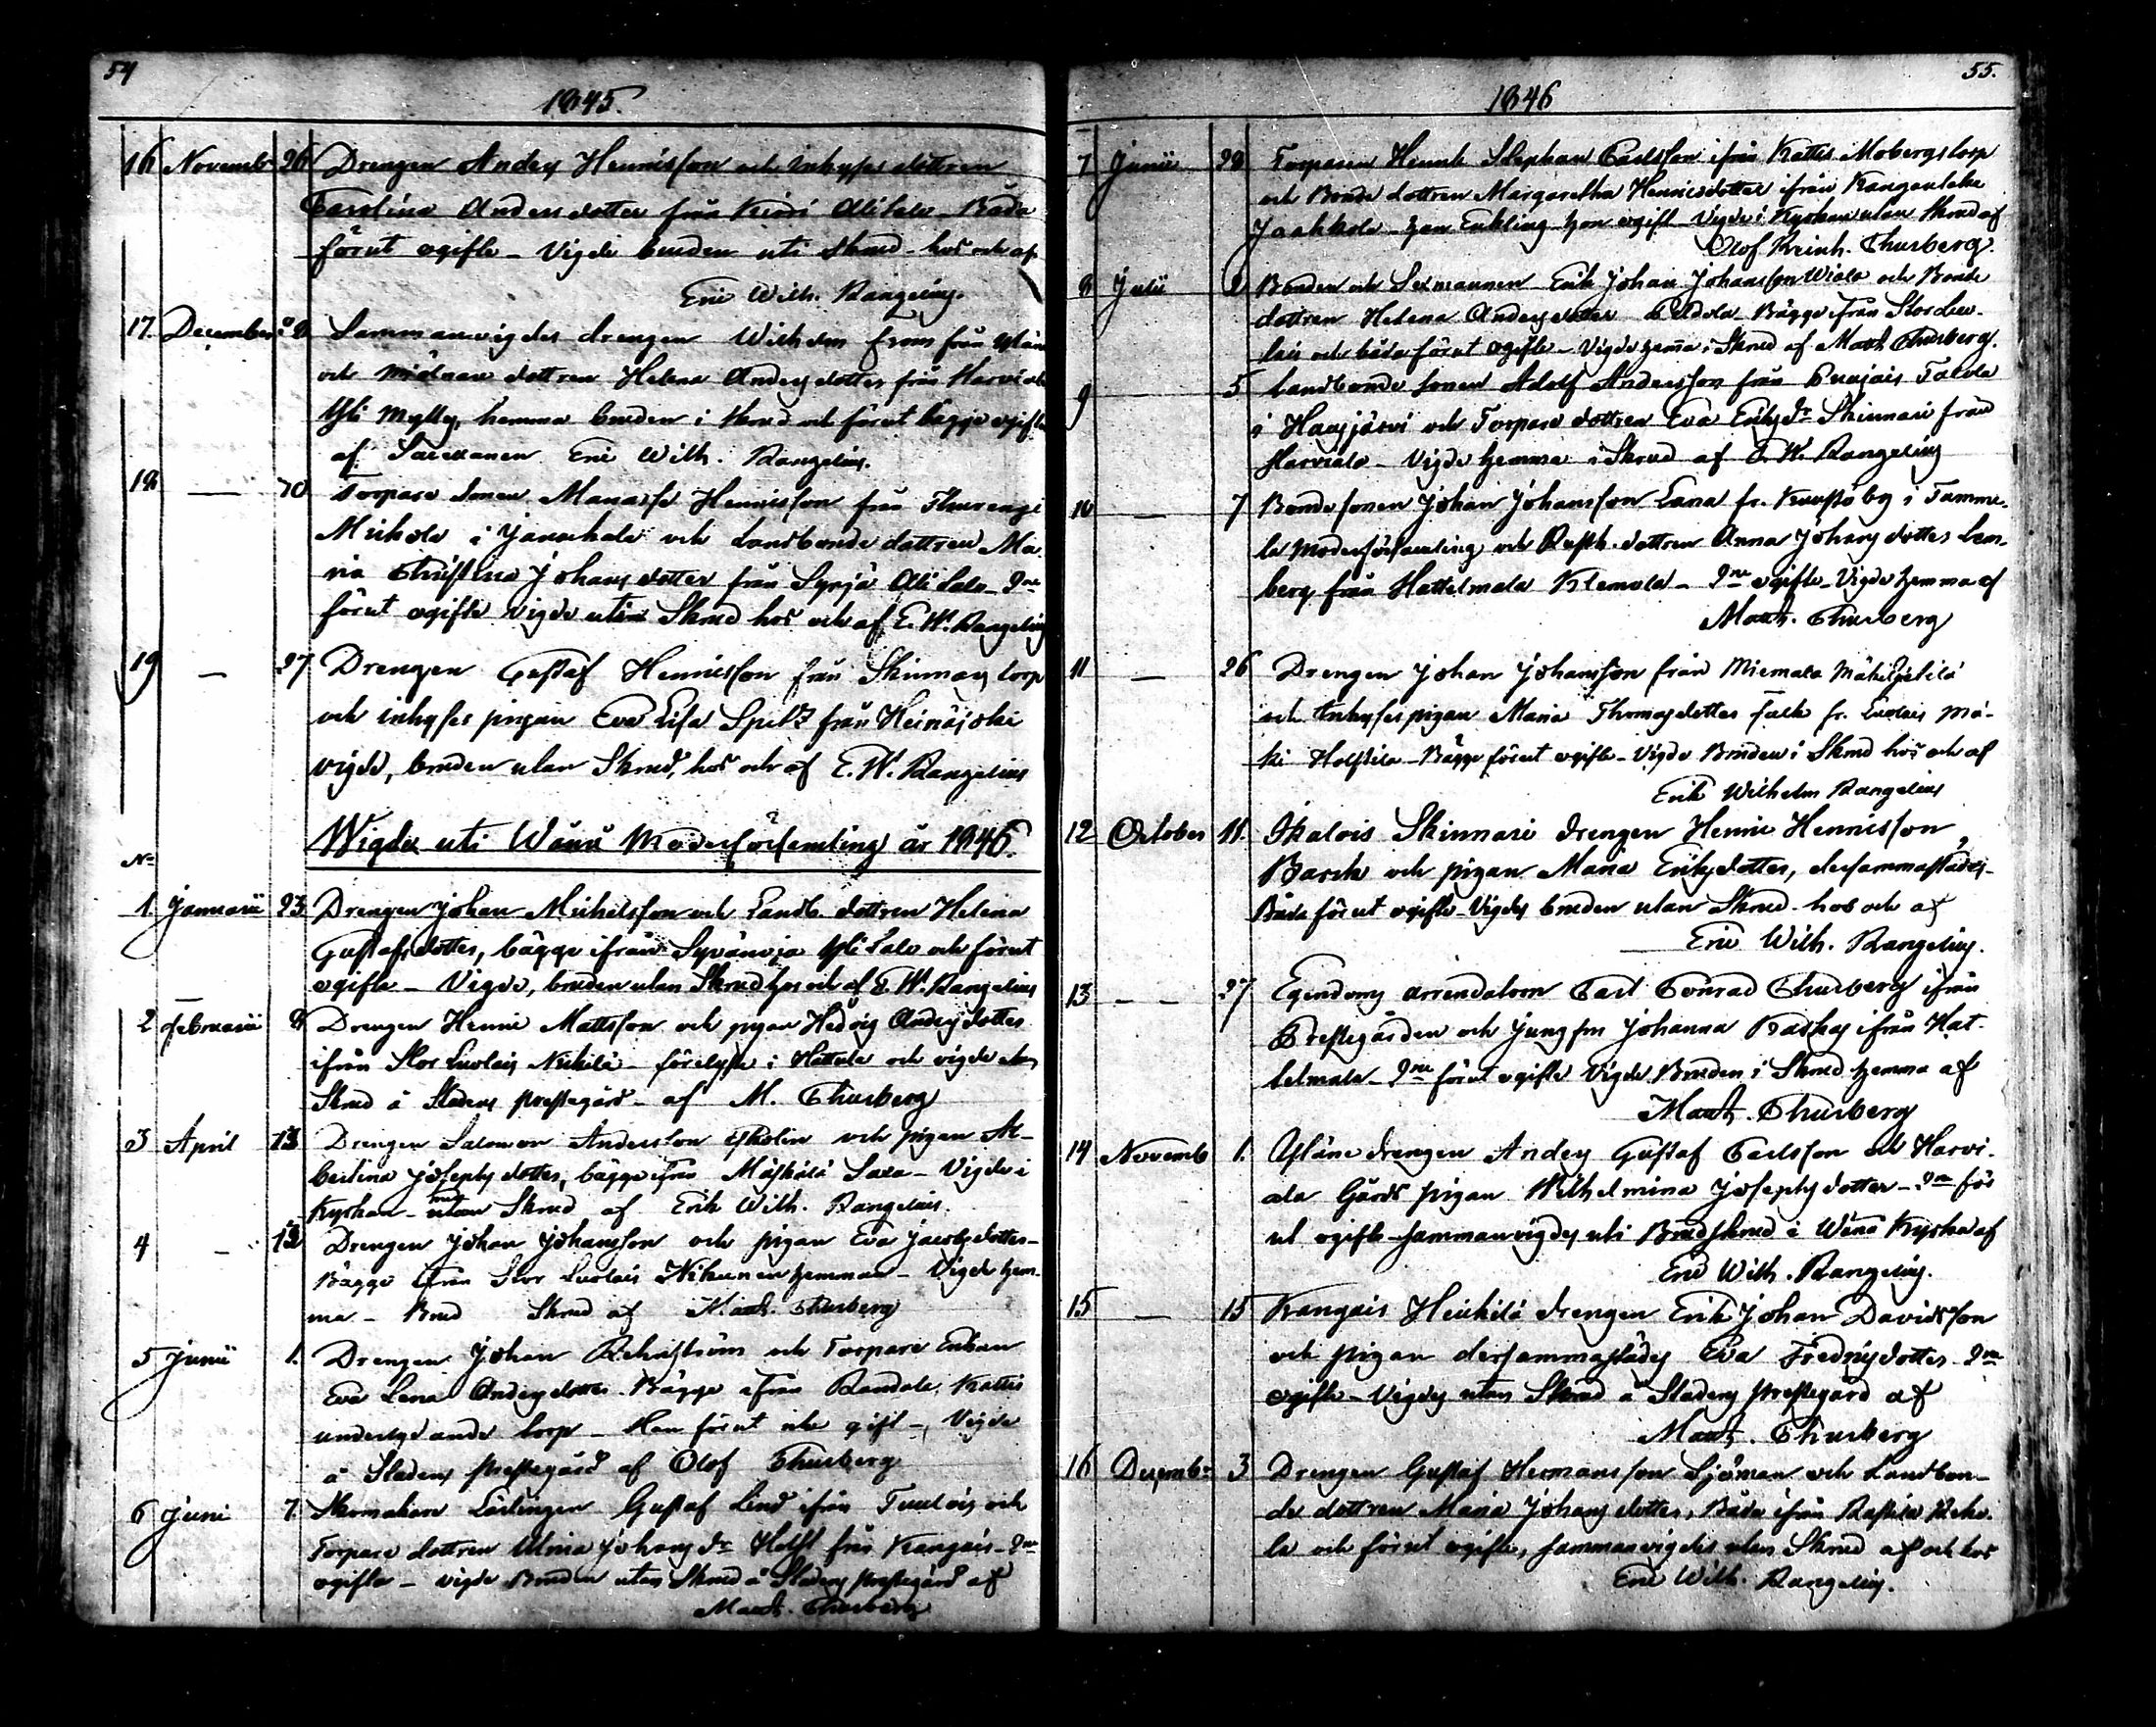 54
1845.
16 Novembr 26 Drengen Anders Henricsson och inhyses dottren
Carolina Andersdotter från Alisalo Båda
förut ogifte - Vigde bruden uti Skrud hos och af
Eric Wilh. Rangelius.
17. December Sammanvigdes drengen Wilhelm from från
och dottren Helena Andersdotter från Harviala
Yli Mylly, hemma bruden i skrud och förut bägge ogifte
af Eric Wilh. Rangelius.
18 — Torpare sonen Manasse Henricsson från Thurengi
i Janakkala och Landbonde dottren Ma
ria Christina Johansdotter från Syrjä Alisalo
förut ogifte vigde utan Skrud hos och af E. W. Rangelius
19 — 27 Drengen Gustaf Henricsson från Skinnars torp
och inhyses pigan Eva Lisa från Heinäjoki
vigde, bruden utan Skrud, hos och af E. W. Rangelius
Wigde uti Wånå Moderförsamling år 1846.
No
1. Januarii 23 Drengen Johan Michelsson och Landb. dottren Helena
Gustafsdotter, bägge ifrån Yli Salo och förut
ogifte - Vigde, bruden utan Skrud hos och af E. W. Rangelius
2 Februarii 8 Drengen Henric Mattsson och pigan Hedvig Andersdotter
ifrån Stor Luolais Nikkilä - förelyste i Hattula och vigde utan
Skrud å Stadens prestegård - af M. Thurberg
3 April 13 Drengen Salomon Andersson och pigan Al-
bertina Josephsdotter, bägge från Mäskälä - Vigde i
Kyrkan - utan Skrud af Erik Wilh. Rangelius.
4 — Drengen Johan Johansson och pigan Eva Jacobsdotter -
Bägge från Stor Luolais hemman - Vigde hem-
ma - Brud Skrud af Math. Thurberg
5 Junii 1. Drengen Johan och Torpare Enkan
Eva Lena Andersdotter Bägge ifrån Kattis
underlydande torp - Han förut icke gift - Vigde
å Stadens prestegård af Olof Thurberg
6 Juni 7. Skomakare Lärlingen Gustaf Lind ifrån Tuulois och
Torpare dottren Johansdr från Kangais
ogifte - vigde Bruden utan Skrud å Stadens prestegård af
Math. Thurberg
55.
1846
7 Junii 28 Torparen Henrik Stephan Carlsson ifrån Kattis Mobergs torp
och Bonde dottren Margaretha Henricsdotter ifrån
Jaakkola - han Enkling hon ogift - Vigde i Kyrkan utan Skrud af
Olof Reinh. Thurberg.
8 Julii Bonden och Sexmannen Erik Johan Johansson Wiala och Bonde
dottren Helena Andersdotter Bägge ifrån Stor Luo-
lais och båda förut ogifte - Vigde hemma i Skrud af Math Thurberg.
9 — 5 Landbonde sonen Adolf Andersson från
i Hausjärvi och Torpare dottren Eva Eriksdr Skinnari från
Harviala - Vigde hemma i Skrud af E. W. Rangelius
10 — 7 Bonde sonen Johan Johansson fr. i Tamme-
la Moderförsamling och Rusth. dottren Anna Johansdotter Lem-
berg från Hattelmala Klemola - ogifte - Vigde hemma af
Math. Thurberg
11 — 26 Drengen Johan Johansson från Miemala
och Inhyses pigan Maria Thomasdotter Falk fr. Luolais Mä-
ki - Bägge förut ogifte - Vigde Bruden i Skrud hos och af
Erik Wilhelm Rangelius
12 October 11. Ikalois Skinnari drengen Henric Henricsson
och pigan Maria Eriksdotter, dersammastädes -
Båda förut ogifte - Vigdes bruden utan Skrud hos och af
Eric Wilh. Rangelius.
13 — — 27 Egendoms arrendatorn Carl Conrad Thurberg ifrån
Prestegården och Jungfru Johanna ifrån Hat-
telmala - förut ogifte Vigde Bruden i Skrud hemma af
Math. Thurberg
14 Novemb 1. drengen Anders Gustaf Carlsson och Harvi-
ala Gårds pigan Wilhelmina Josephsdotter - för
ut ogifte - sammanvigdes uti Brudskrud i Wånå Kyrka af
Eric Wilh. Rangelius.
15 — 15 Kangais Heikkilä drengen Erik Johan Davidsson
och pigan dersammastädes Eva Fredriksdotter
ogifte - Vigdes utan Skrud å Stadens prestegård af
Math. Thurberg
16 Decembr 3 Drengen Gustaf Hermansson Sjöman och Landbon-
de dottren Maria Johansdotter, Båda ifrån
och förut ogifte, sammanvigdes utan Skrud af och hos
Eric Wilh. Rangelius.